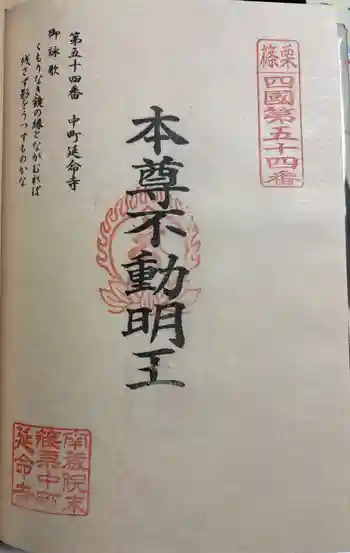 篠栗
四國第五十四番
本尊不動明王
第五十四番 中町延命寺
御詠歌
くもりなき鏡の縁とながむれば
残さず影をうつすものかな
南蔵院末
篠栗中町
延命寺